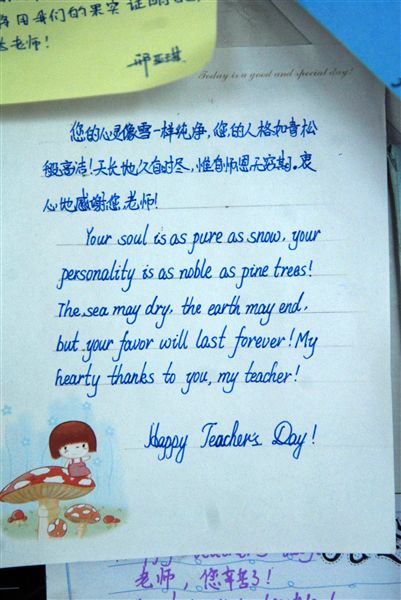 用我们的果实证明
老师!
Today is a good and special day!
您的心灵像雪一样纯净,您的人格如青松
般高洁!天长地久有时尽,惟有师恩无穷期。衷
心地感谢您,老师!
Your soul is as pure as snow, your
personality is as noble as pine trees!
The sea may dry, the earth may end,
but your favor will last forever! My
hearty thanks to you, my teacher!
Happy Teacher's Day!
老师,您辛苦了!